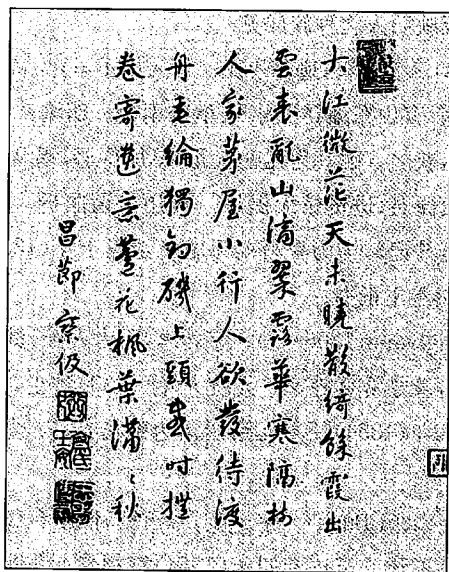 大江微茫天未曉散綺餘霞出
雲表亂山滴翠露華寒隔林
人家茅屋小行人欲發待渡
舟垂綸獨釣磯上頭時
卷寄花楓葉秋
昌節